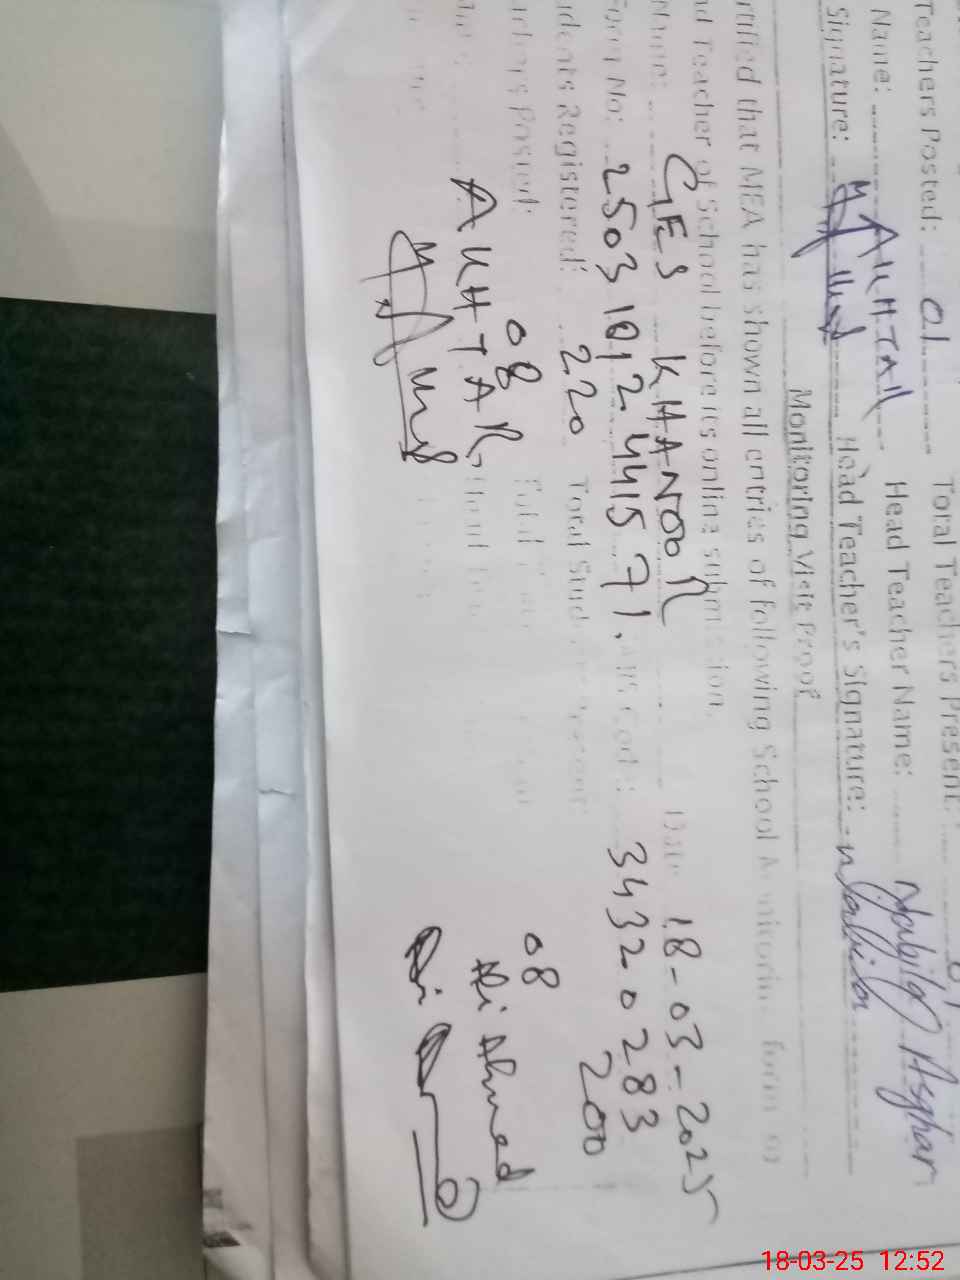 Teachers Posted: 01 Total Teachers Present: 01
Name: AKHTAR Head Teacher Name: Nabila Asghar
Signature: Head Teacher's Signature: Nabila
Monitoring Visit Proof
rtified that MEA has shown all entries of following School Monitoring form to
d Teacher of School before its online submission.
Name: GES KHANOOR Date 18-03-2025
Form No: 25031012441571. Code: 34320283
dents Registered: 220 Total Students Present: 200
achers Posted: 08 Total 08
AKHTAR Ahmed
18-03-25 12:52